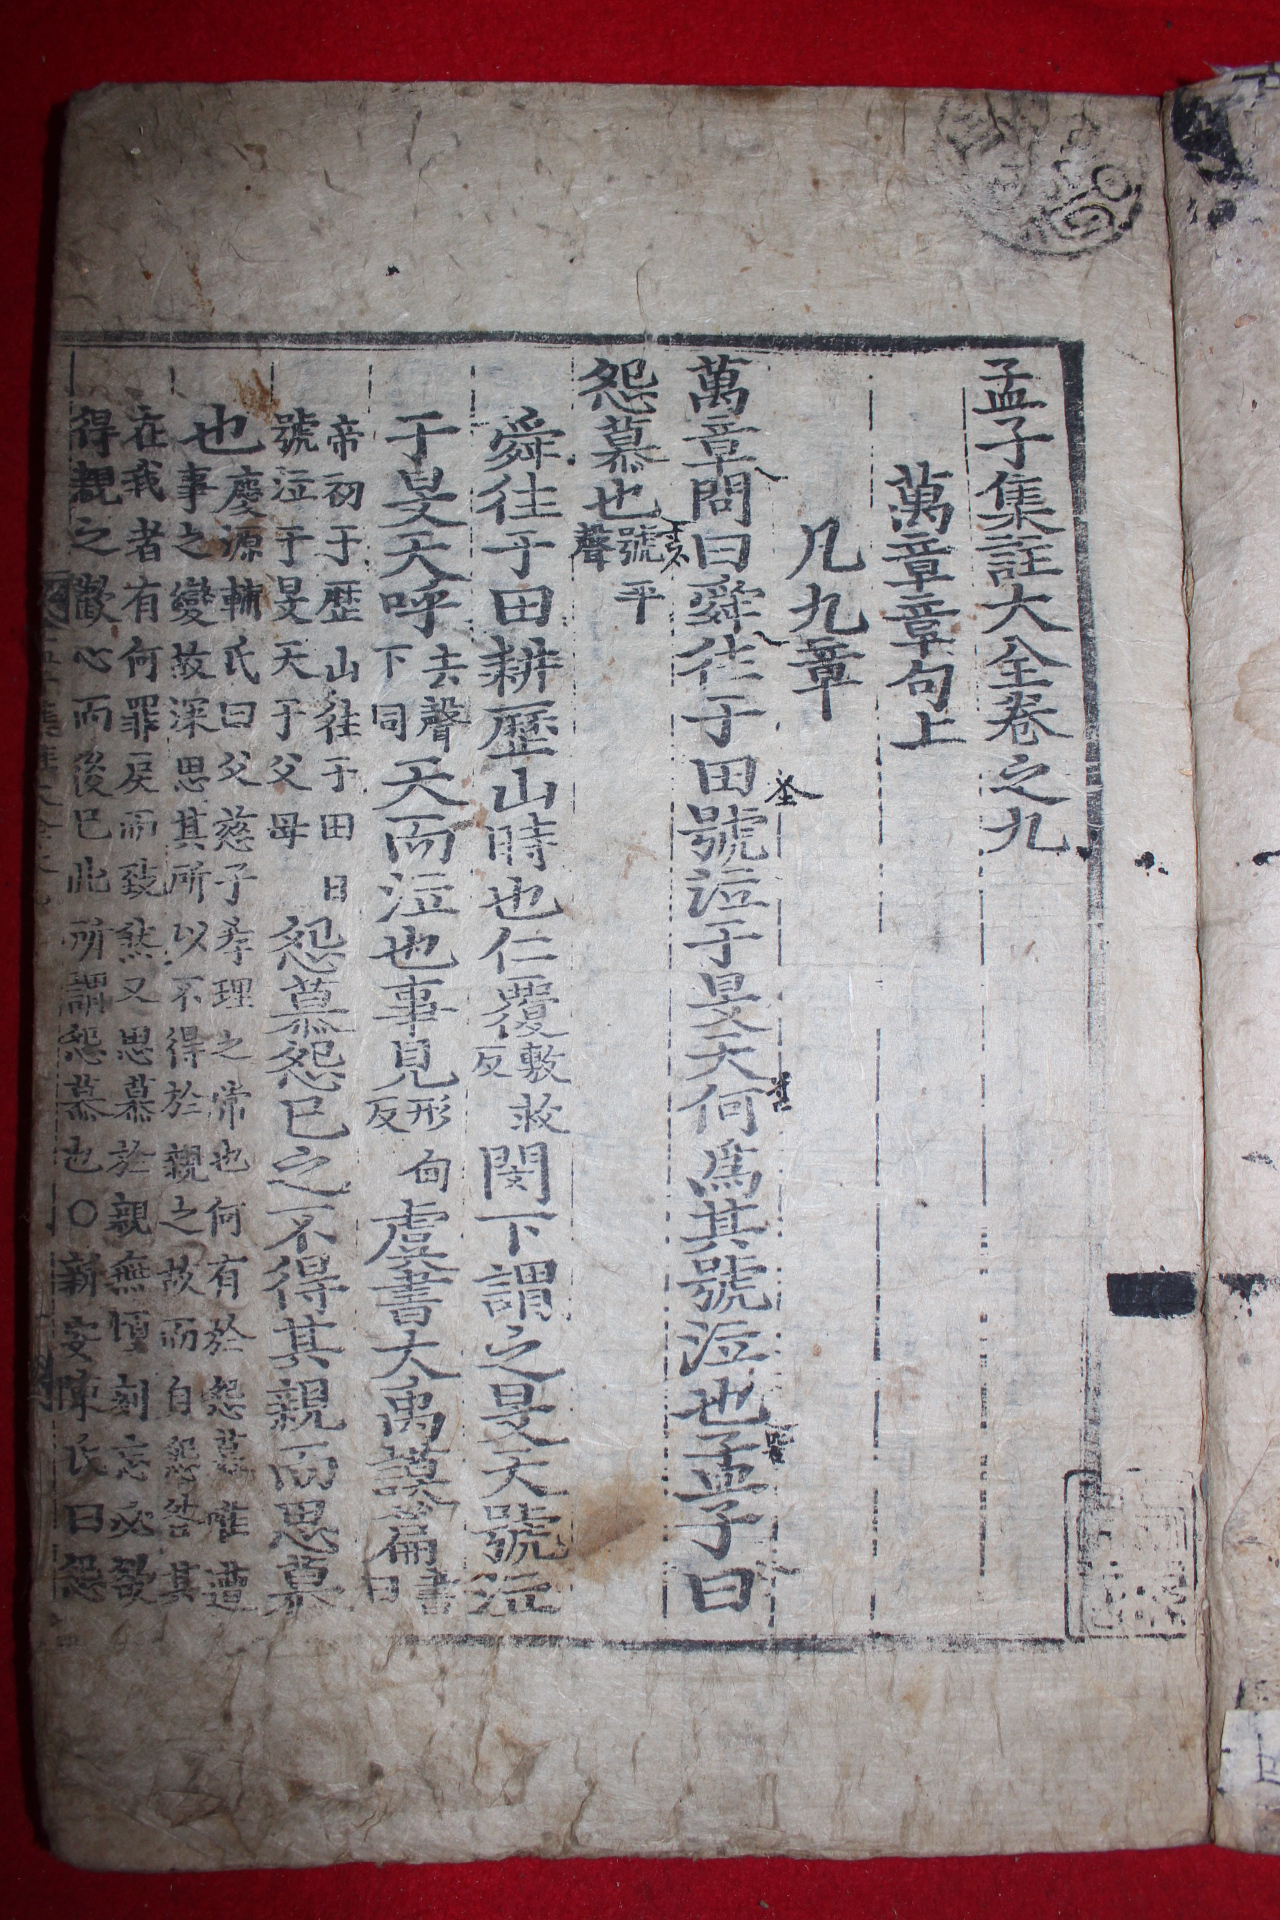 孟子集註大全卷之九
萬章章句上
凡九章
萬章問曰舜往于田號泣于旻天何爲其號泣也孟子曰
怨慕也號平聲
舜往于田耕歷山時也仁覆敷救反閔下謂之旻天號泣
于旻天呼去聲下同天而泣也事見形甸反虞書大禹謨篇書曰
帝初于歷山往于田日號泣于旻天于父母怨慕怨己之不得其親而思慕
也慶源輔氏曰父慈子孝理之常也何有於怨慕唯遭
事之變故深思其所以不得於親之故而自怨咎其
在我者有何罪戾而致然又思慕於親無頃刻忘必欲
得親之歡心而後已此所謂怨慕也○新安陳氏曰怨